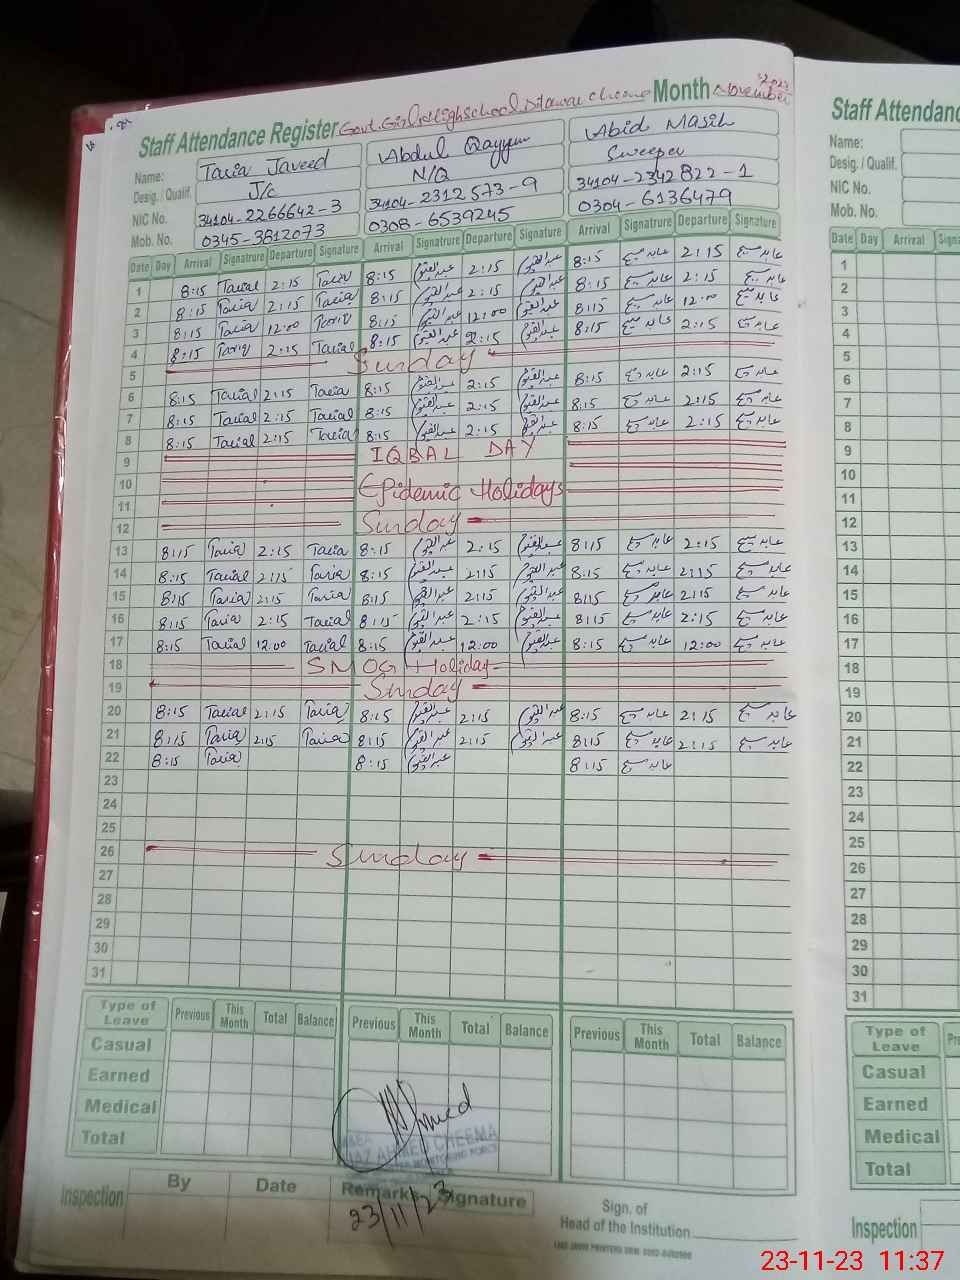 Staff Attendance Register Govt. Girls High School Dilawar Cheema Month November 2023
Name: Tariq Javeed Abdul Qayyum Abid Masih
Desig. / Qualif. J/C N/Q Sweeper
NIC No. 34104-2266642-3 34104-2312573-9 34104-2342822-1
Mob. No. 0345-3812073 0308-6539245 0304-6136479
Date Day Arrival Signatrure Departure Signature Arrival Signatrure Departure Signature Arrival Signatrure Departure Signature
1 8:15 Tariq 2:15 Tariq 8:15 عبدالقیوم 2:15 عبدالقیوم 8:15 عابد مسیح 2:15 عابد مسیح
2 8:15 Tariq 2:15 Tariq 8:15 عبدالقیوم 2:15 عبدالقیوم 8:15 عابد مسیح 2:15 عابد مسیح
3 8:15 Tariq 12:00 Tariq 8:15 عبدالقیوم 12:00 عبدالقیوم 8:15 عابد مسیح 12:00 عابد مسیح
4 8:15 Tariq 2:15 Tariq 8:15 عبدالقیوم 2:15 عبدالقیوم 8:15 عابد مسیح 2:15 عابد مسیح
5 Sunday
6 8:15 Tariq 2:15 Tariq 8:15 عبدالقیوم 2:15 عبدالقیوم 8:15 عابد مسیح 2:15 عابد مسیح
7 8:15 Tariq 2:15 Tariq 8:15 عبدالقیوم 2:15 عبدالقیوم 8:15 عابد مسیح 2:15 عابد مسیح
8 8:15 Tariq 2:15 Tariq 8:15 عبدالقیوم 2:15 عبدالقیوم 8:15 عابد مسیح 2:15 عابد مسیح
9 IQBAL DAY
10 Epidemic Holidays
11
12 Sunday
13 8:15 Tariq 2:15 Tariq 8:15 عبدالقیوم 2:15 عبدالقیوم 8:15 عابد مسیح 2:15 عابد مسیح
14 8:15 Tariq 2:15 Tariq 8:15 عبدالقیوم 2:15 عبدالقیوم 8:15 عابد مسیح 2:15 عابد مسیح
15 8:15 Tariq 2:15 Tariq 8:15 عبدالقیوم 2:15 عبدالقیوم 8:15 عابد مسیح 2:15 عابد مسیح
16 8:15 Tariq 2:15 Tariq 8:15 عبدالقیوم 2:15 عبدالقیوم 8:15 عابد مسیح 2:15 عابد مسیح
17 8:15 Tariq 12:00 Tariq 8:15 عبدالقیوم 12:00 عبدالقیوم 8:15 عابد مسیح 12:00 عابد مسیح
18 SMOG Holiday
19 Sunday
20 8:15 Tariq 2:15 Tariq 8:15 عبدالقیوم 2:15 عبدالقیوم 8:15 عابد مسیح 2:15 عابد مسیح
21 8:15 Tariq 2:15 Tariq 8:15 عبدالقیوم 2:15 عبدالقیوم 8:15 عابد مسیح 2:15 عابد مسیح
22 8:15 Tariq 8:15 عبدالقیوم 8:15 عابد مسیح
23
24
25
26 Sunday
27
28
29
30
31
Type of Leave Previous This Month Total Balance Previous This Month Total Balance Previous This Month Total Balance
Casual
Earned
Medical
Total
Ahmed
AHMED CHEEMA
MONITORING FORCE
Inspection By Date Remarks Signature
23/11/23
Sign. of
Head of the Institution
Staff Attendance
Name:
Desig. / Qualif.
NIC No.
Mob. No.
Date Day Arrival
1
2
3
4
5
6
7
8
9
10
11
12
13
14
15
16
17
18
19
20
21
22
23
24
25
26
27
28
29
30
31
Type of Leave
Casual
Earned
Medical
Total
Inspection
23-11-23 11:37